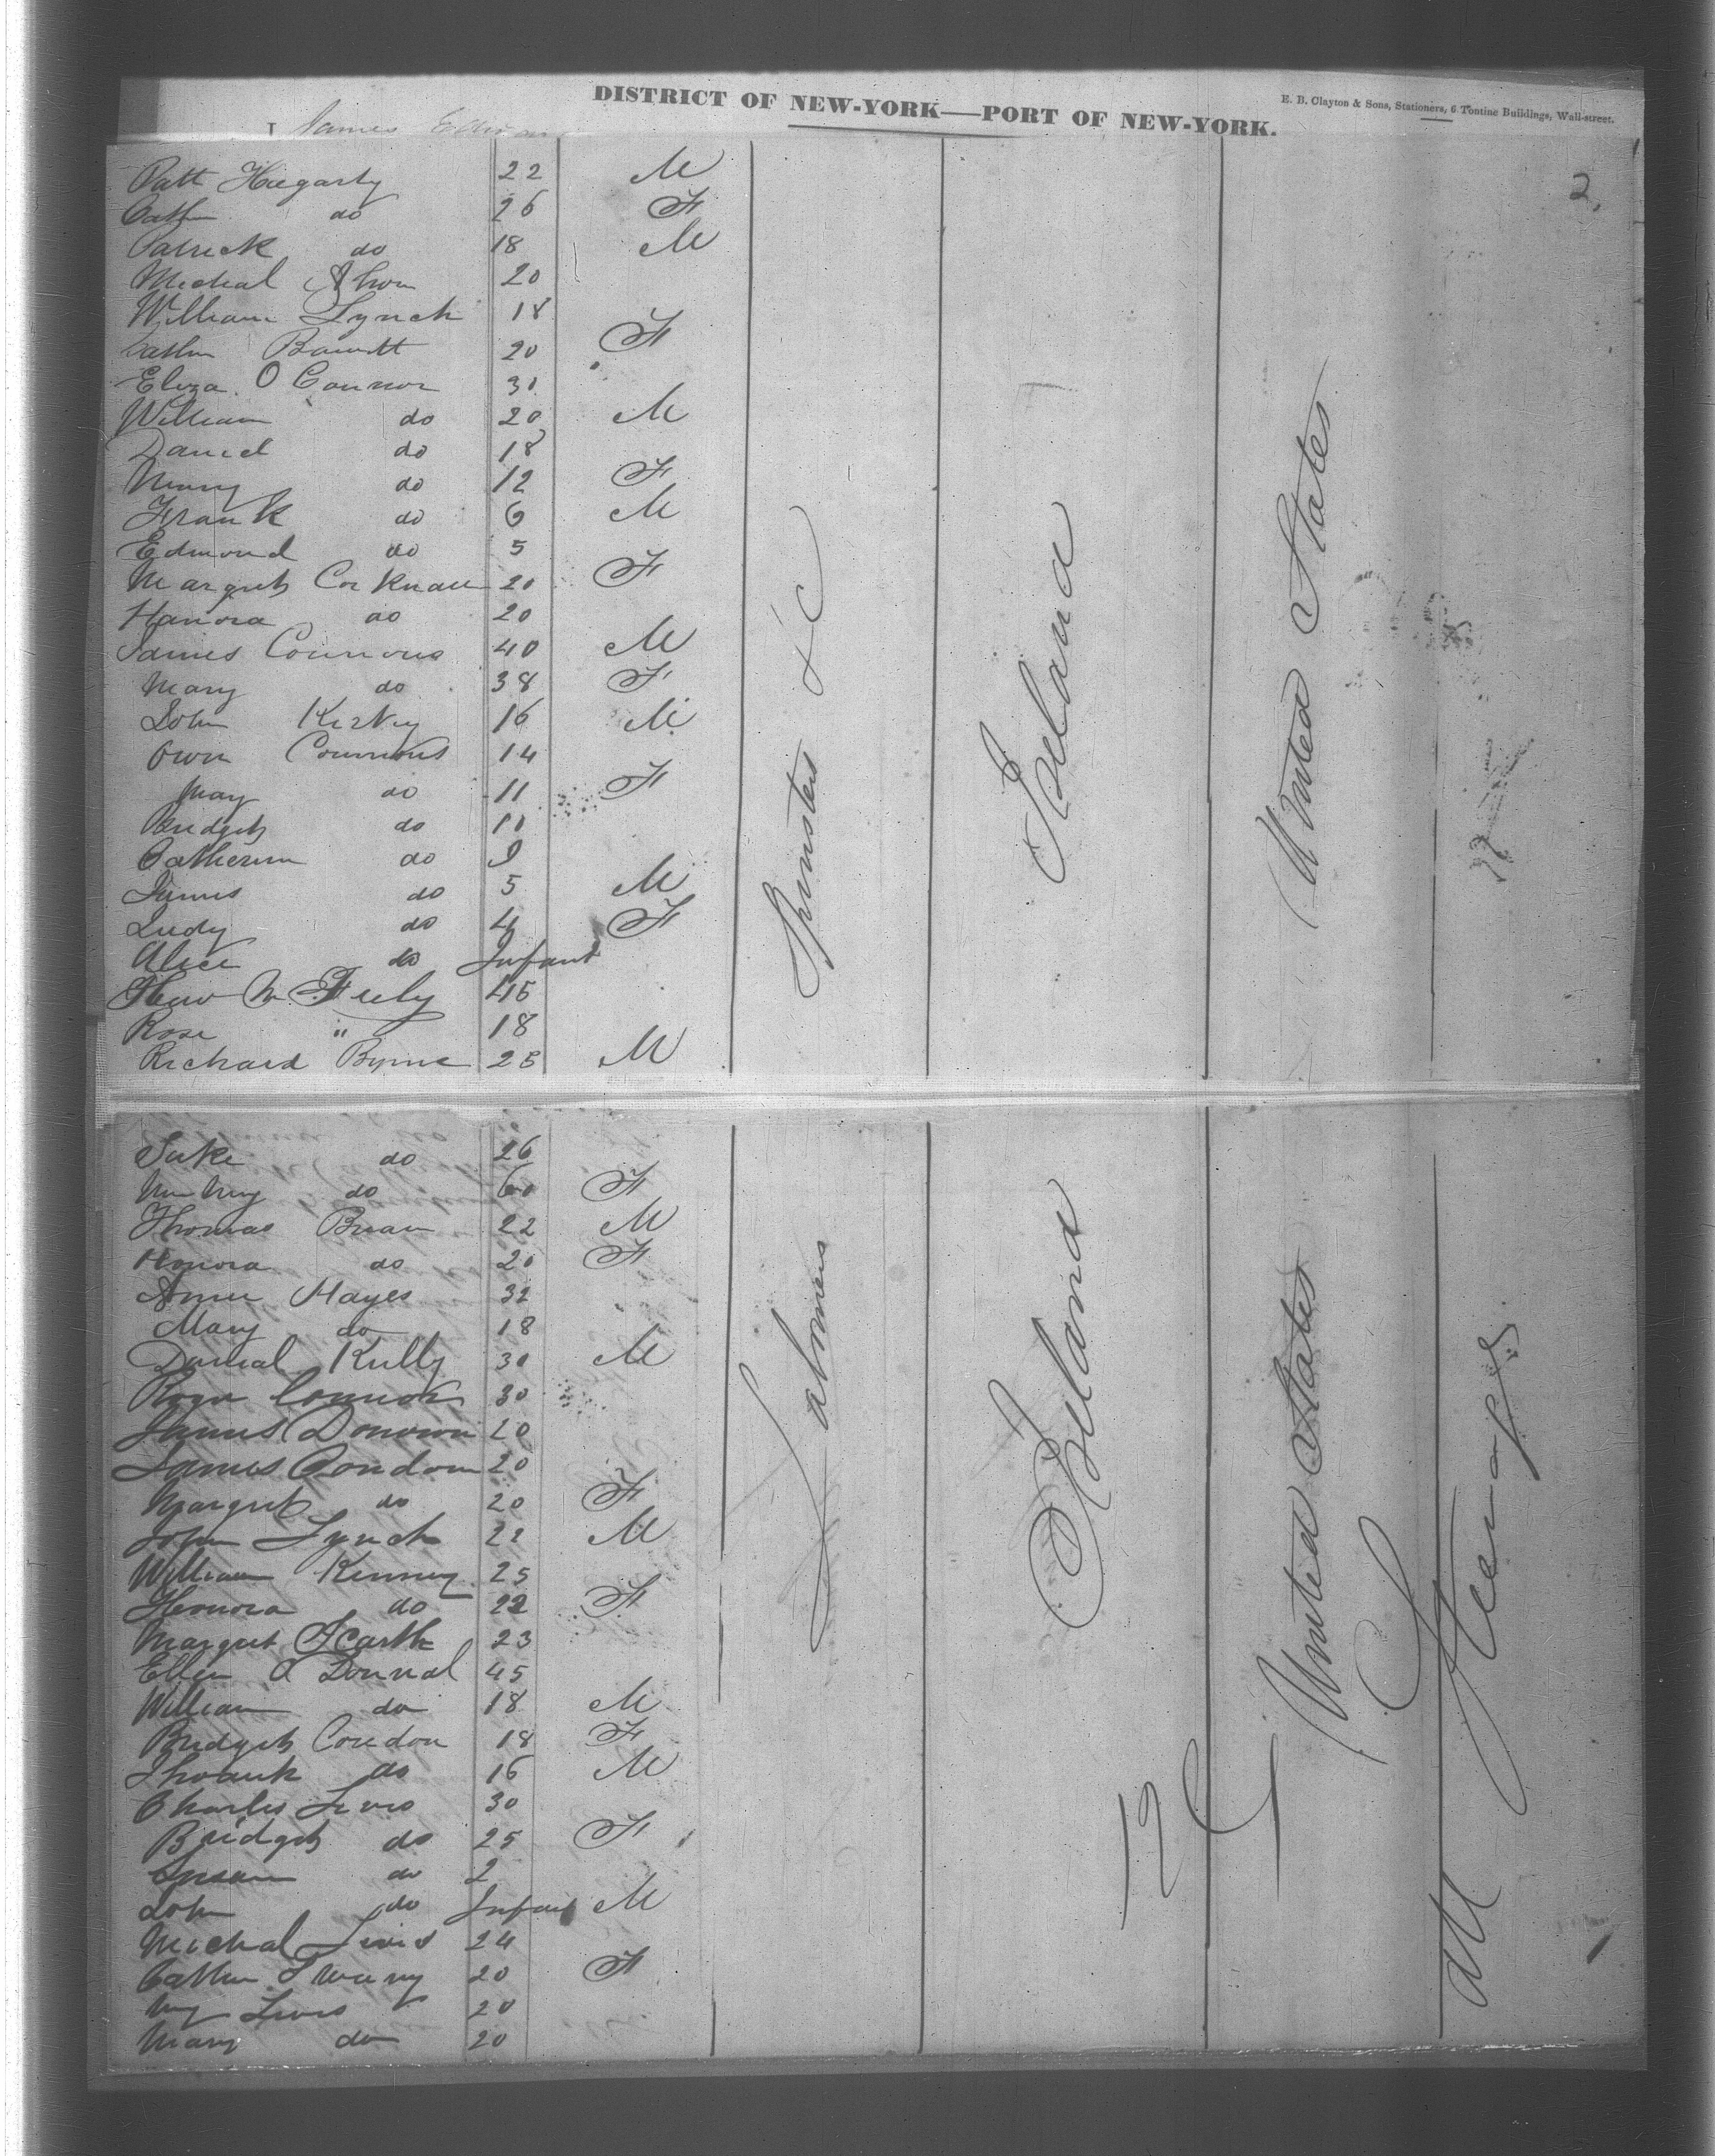 DISTRICT OF NEW-YORK—PORT OF NEW-YORK.
E. B. Clayton & Sons, Stationers, 6 Tontine Buildings, Wall-street.
I James
2.
Patt Hagarty 22 M
Cath do 26 F
Patrick do 18 M
Micheal 20
William Lynch 18
Cathn Barrett 20 F
Eliza O Connor 30
William do 20 M
Daniel do 18
Mary do 12 F
Frank do 6 M
Edmond do 5
Margreth 20 F
Hanora do 20
James Connons 40 M
Mary do 38 F
John 16 M
Owen Connons 14
May do 11 F
Bridgth do 10
Catherin do 9
James do 5 M
Judy do 4 F
Alice do Infant
Feely 45
Rose " 18
Richard Byrne 25 M
Spinsters &c
Ireland
United States
do 26
do 60 F
Thomas 22 M
Honora do 20 F
Hayes 32
Mary do 18
Danial Kelly 30 M
Roger Connor 30
James Donovan 20
James Condon 20
Margret do 20 F
John Lynch 22 M
William Kenney 25
Honora do 22 F
Margret 23
Ellen O Donnal 45
William do 18 M
Bridgth Condon 18 F
do 16 M
Charles Lewis 30
Bridgth do 25 F
Susan do 2
John do Infant M
Michal Lewis 24
Cathn 20 F
Lewis 20
Mary do 20
Labourers
Ireland
United States
All Steerage